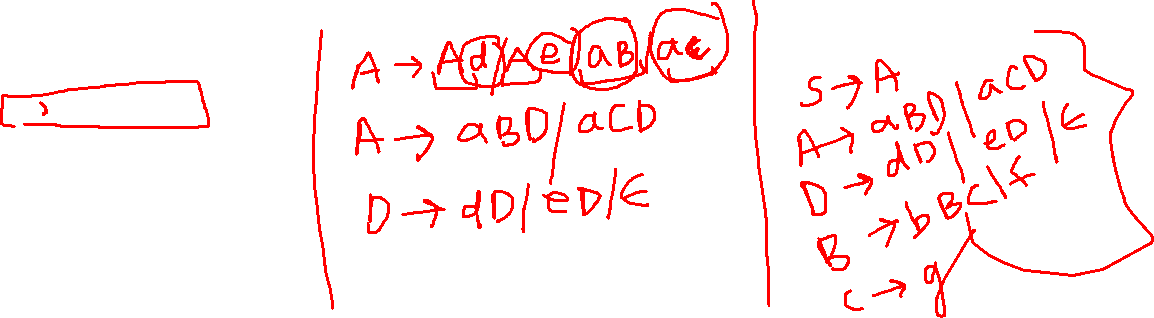 A → Ad/Ae/aB/aC
A → aBD/aCD
D → dD/eD/ϵ
S → A
A → aBD/aCD
D → dD/eD/ϵ
B → bBC/f
C → g